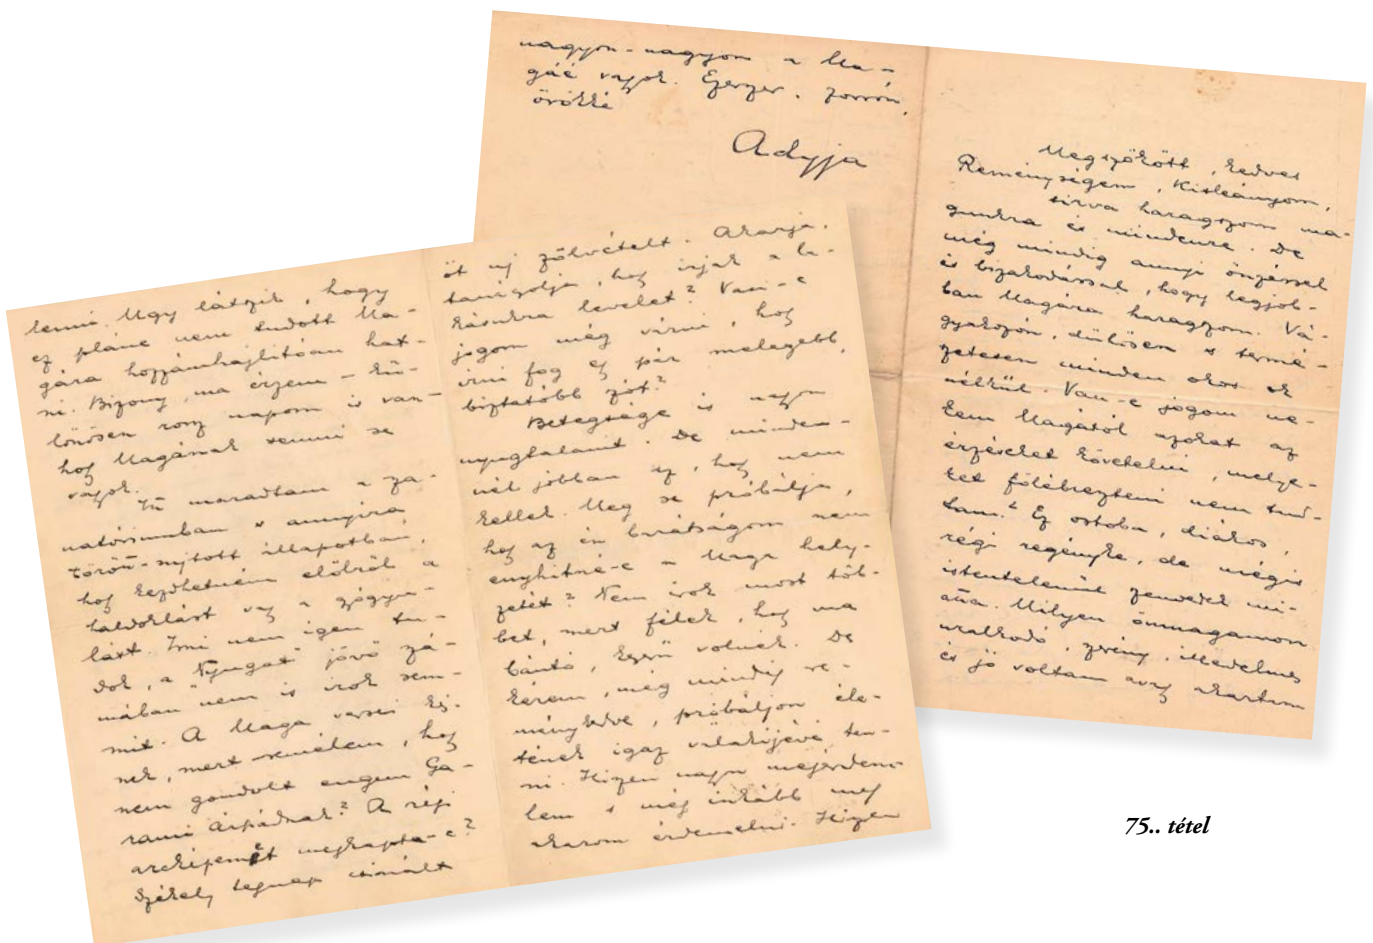 Megszökött, kedves
Reménységem, Kisleányom,
sirva haragszom ma-
gunkra és mindenre. De
még mindig annyi önzéssel
és bizakodással, hogy legjob-
ban Magára haragszom. Vá-
gyakozón, dülösen s termé-
szetesen minden okos ok
nélkül. Van-e jogom ne-
kem Magától azokat az
érzéseket követelni, melye-
ket fölébreszteni nem tud-
tam? Ez ostoba, diákos,
régi regényke, de mégis
istentelenül szenvedek mi-
atta. Milyen önmagamon
uralkodó, szerény, illedelmes
és jó voltam avagy akartam
lenni. Ugy látszik, hogy
ez pláne nem tudott Ma-
gára hozzámhajlitóan hat-
ni. Bizony, ma érzem - kü-
lönösen rossz napom is van -
hogy Magának semmi se
vagyok.
Itt maradtam a sza-
natóriumban s annyira
törött-nyitott állapotban,
hogy kezdhetném előlről a
haldoklást vagy a gyógyu-
lást. Irni nem igen tu-
dok, a Nyugat jövő szá-
mában nem is irok sem-
mit. A Maga versei
mert remélem, hogy
nem gondolt engem Ga-
rami Árpádnak? A régi
arcképemet megkapta-e?
Székely tegnap csinált
öt uj fölvételt. Akarja,
hogy irjak a la-
kásukra levelet? Van-e
jogom még várni, hogy
irni fog egy pár melegebb,
biztatóbb szót?
Betegsége is nagyon
nyugtalanit. De minden-
nél jobban az, hogy nem
kellek. Meg se próbálja,
hogy az én barátságom nem
enyhitné-e a Maga hely-
zetét? Nem irok most töb-
bet, mert félek, hogy ma
bántó, keserű volnék. De
kérem, még mindig re-
ménykedve, próbáljon éle-
tének igaz valakijévé ten-
ni. Hiszen nagyon megérdem-
lem s még inkább meg
akarom érdemelni. Hiszen
nagyon-nagyon a Ma-
gáé vagyok. Ezerszer, forrón,
örökké
Adyja
75.. tétel